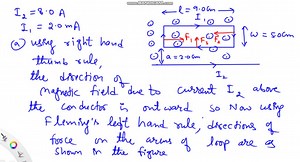 I₂ = 8.0 A
I₁ = 2.0 mA
l = 9.0 cm
I₁
F₁
F₂
W = 5.0 cm
a = 2.0 cm
I₂
(a) using right hand
thumb rule,
the direction of
magnetic field due to current I₂ above
the conductor is outward so Now using
Fleming's left hand rule, directions of
force on the arms of loop are as
shown in the figure